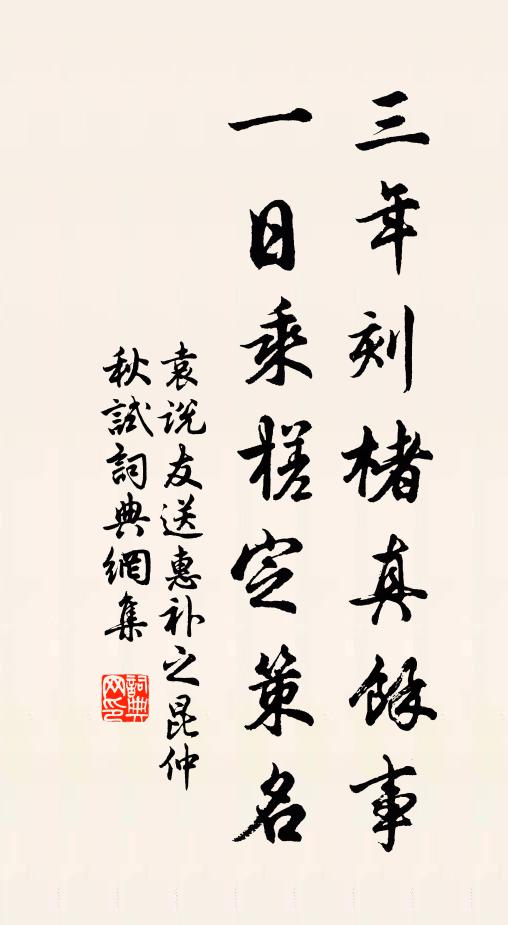 三年刻楮真餘事
一日乘槎定策名
袁说友送惠补之昆仲
秋試詞典網集
詞典网印